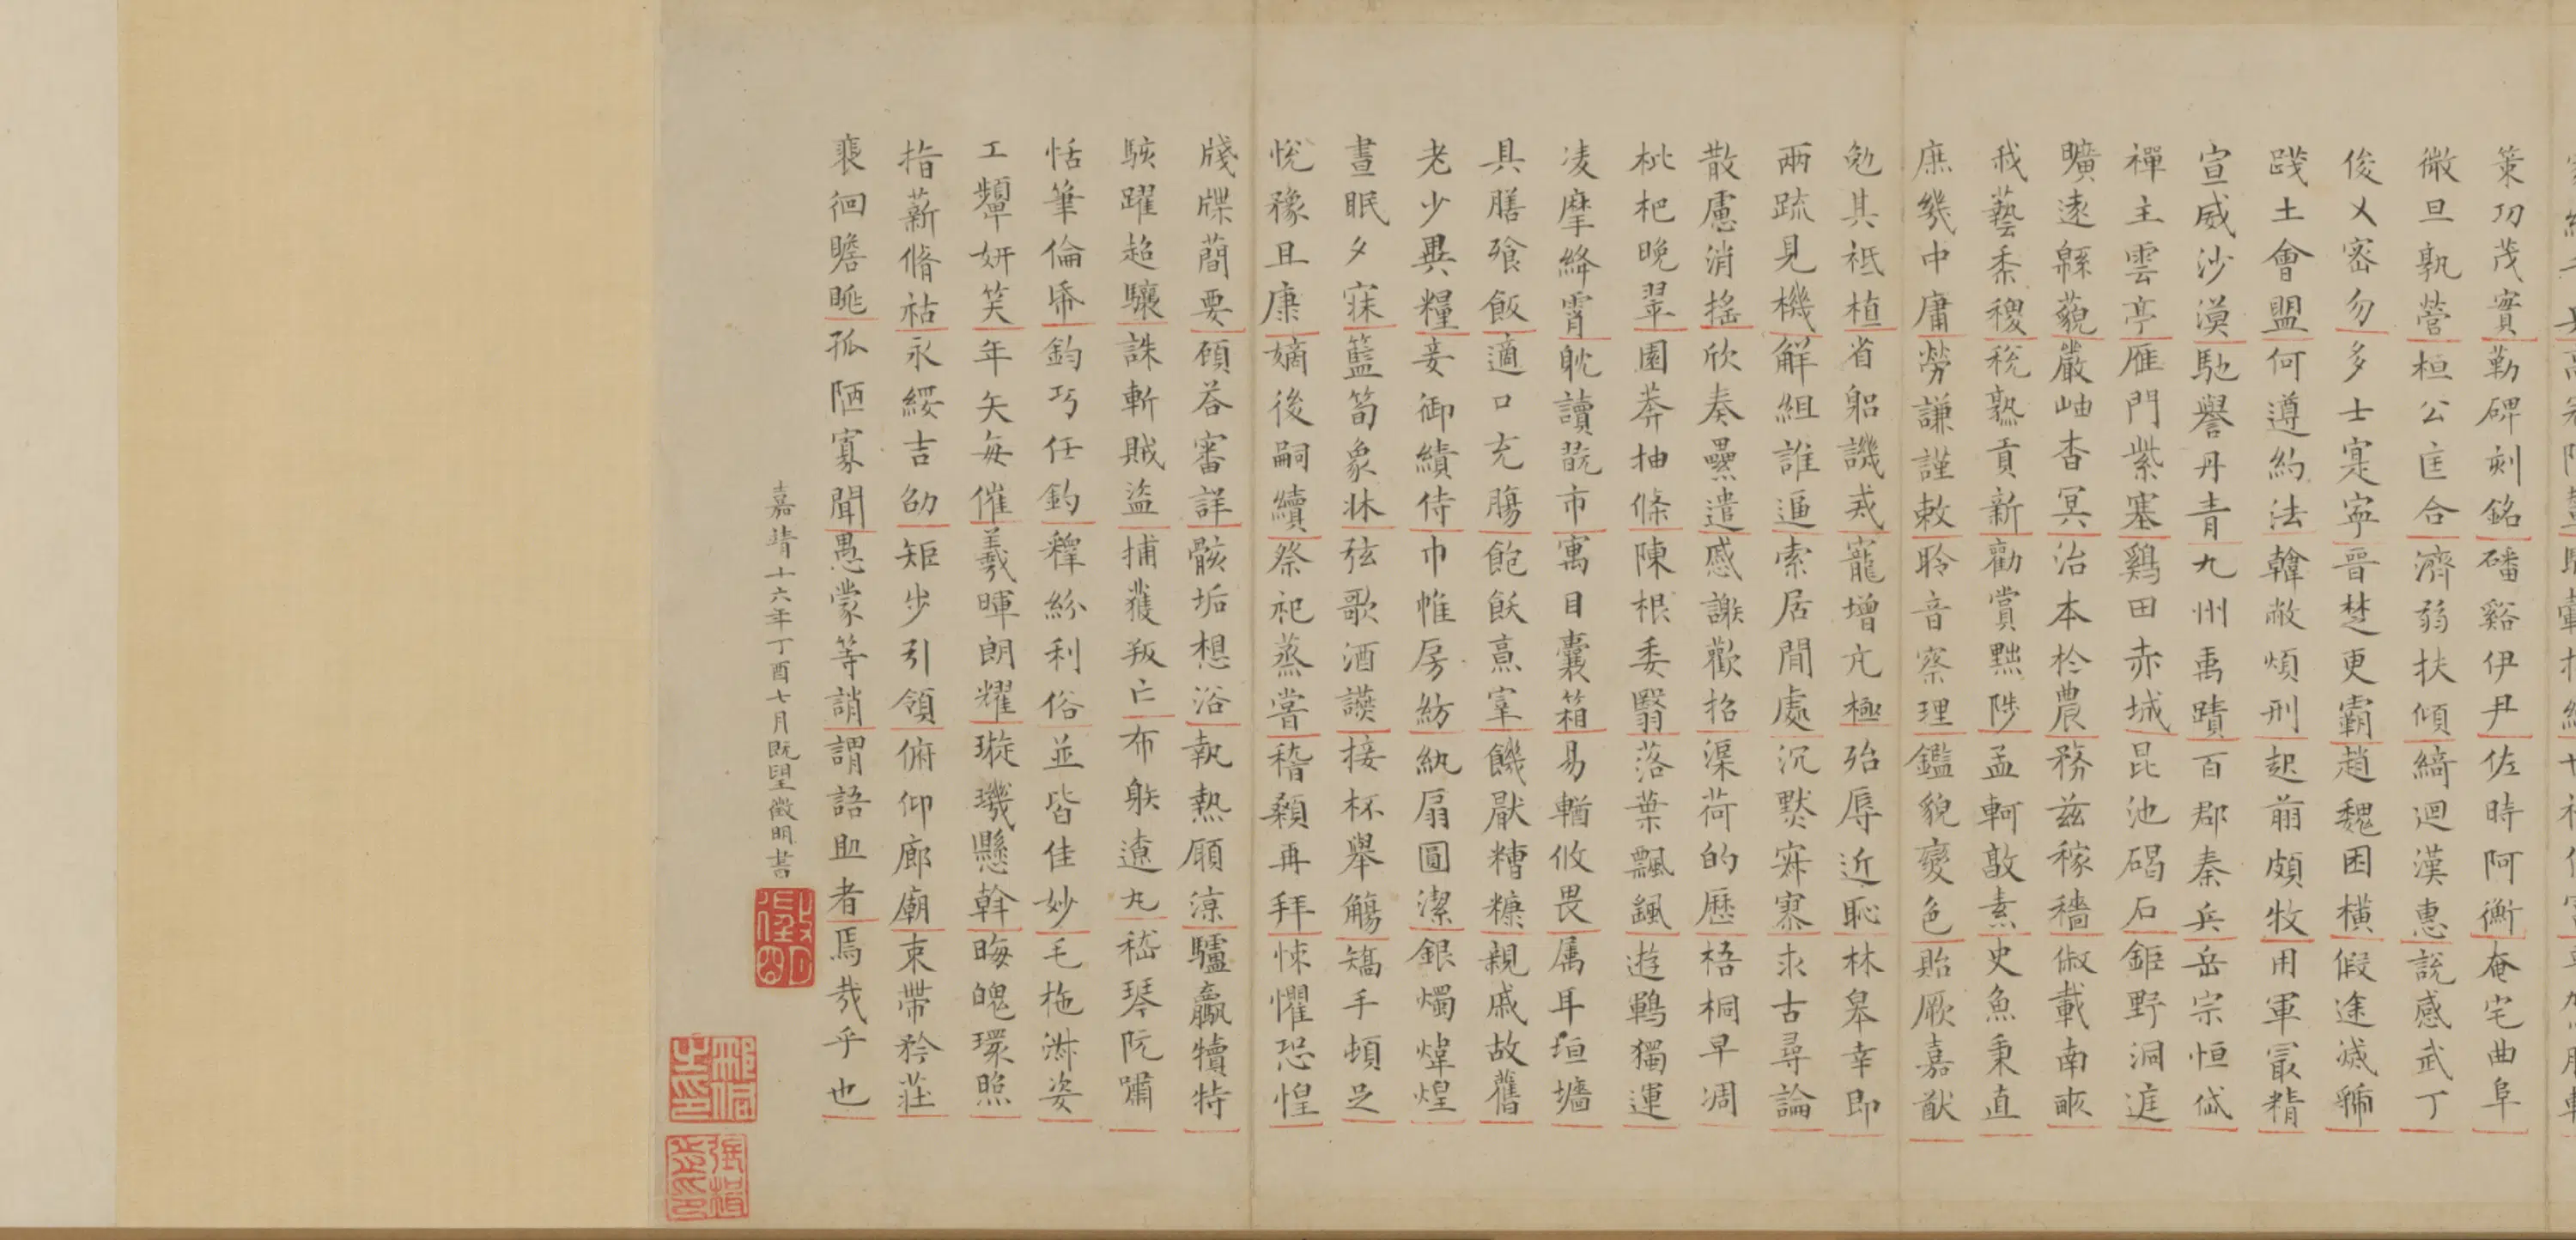 策功茂實勒碑刻銘磻谿伊尹佐時阿衡奄宅曲阜
微旦孰營桓公匡合濟弱扶傾綺迴漢惠說感武丁
俊乂密勿多士寔寧晉楚更霸趙魏困橫假途滅虢
踐土會盟何遵約法韓敝煩刑起翦頗牧用軍最精
宣威沙漠馳譽丹青九州禹蹟百郡秦兵岳宗恒岱
禪主雲亭雁門紫塞鷄田赤城昆池碣石鉅野洞庭
曠遠緜藐巖岫杳冥治本於農務茲稼穡俶載南畝
我藝黍稷稅熟貢新勸賞黜陟孟軻敦素史魚秉直
庶幾中庸勞謙謹敕聆音察理鑑貌變色貽厥嘉猷
勉其祗植省躬譏戒寵增亢極殆辱近恥林皋幸即
兩疏見機解組誰逼索居閒處沉默寂寥求古尋論
散慮消搖欣奏累遣慼謝歡招渠荷的歷梧桐早凋
枇杷晚翠園莽抽條陳根委翳落葉飄颻遊鵾獨運
凌摩絳霄耽讀翫市寓目囊箱易輶攸畏属耳垣墻
具膳飡飯適口充腸飽飫烹宰饑厭糟糠親戚故舊
老少異糧妾御績侍巾帷房紡紈扇圓潔銀燭煒煌
晝眠夕寐籃筍象牀弦歌酒讌接杯舉觴矯手頓足
悅豫且康嫡後嗣續祭祀蒸嘗稽顙再拜悚懼恐惶
牋牒簡要顧荅審詳骸垢想浴執熱願涼驢騾犢特
駭躍超驤誅斬賊盜捕獲叛亡布射遼丸嵇琴阮嘯
恬筆倫紙鈞巧任釣釋紛利俗並皆佳妙毛施淑姿
工顰妍笑年矢每催羲暉朗耀璇璣懸斡晦魄環照
指薪脩祜永綏吉劭矩步引領俯仰廊廟束帶矜莊
裵徊瞻眺孤陋寡聞愚蒙等誚謂語助者焉哉乎也
嘉靖十六年丁酉七月既望徵明書